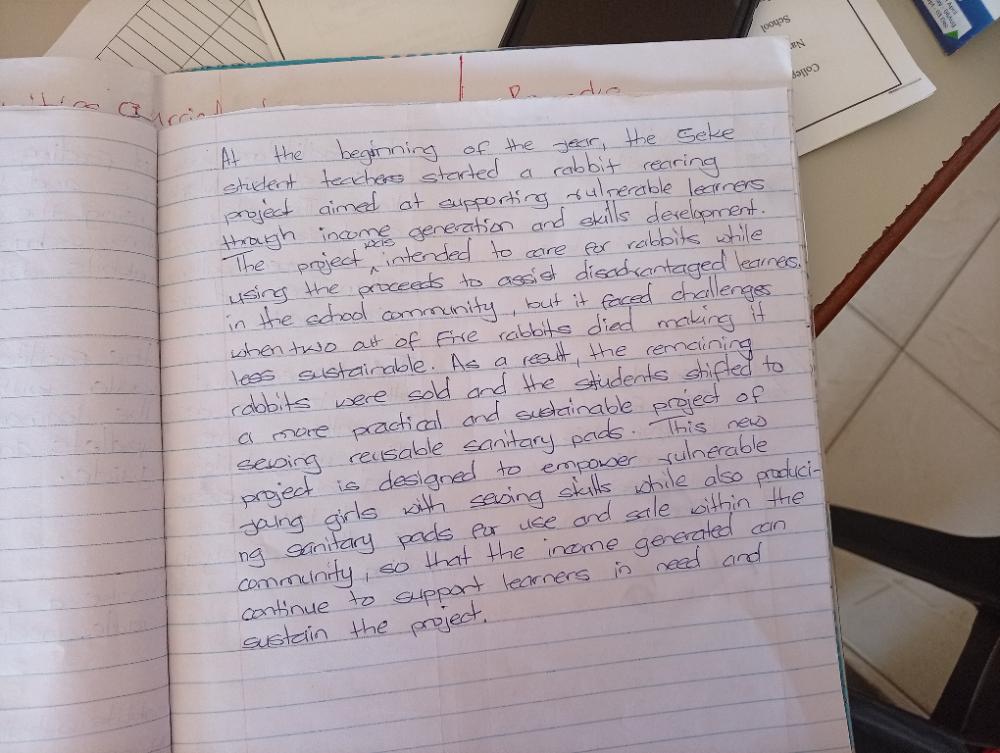 School
At the beginning of the year, the Seke
student teachers started a rabbit rearing
project aimed at supporting vulnerable learners
through income generation and skills development.
The project was intended to care for rabbits while
using the proceeds to assist disadvantaged learners
in the school community, but it faced challenges
when two out of five rabbits died making it
less sustainable. As a result, the remaining
rabbits were sold and the students shifted to
a more practical and sustainable project of
sewing reusable sanitary pads. This new
project is designed to empower vulnerable
young girls with sewing skills while also produci-
ng sanitary pads for use and sale within the
community, so that the income generated can
continue to support learners in need and
sustain the project.